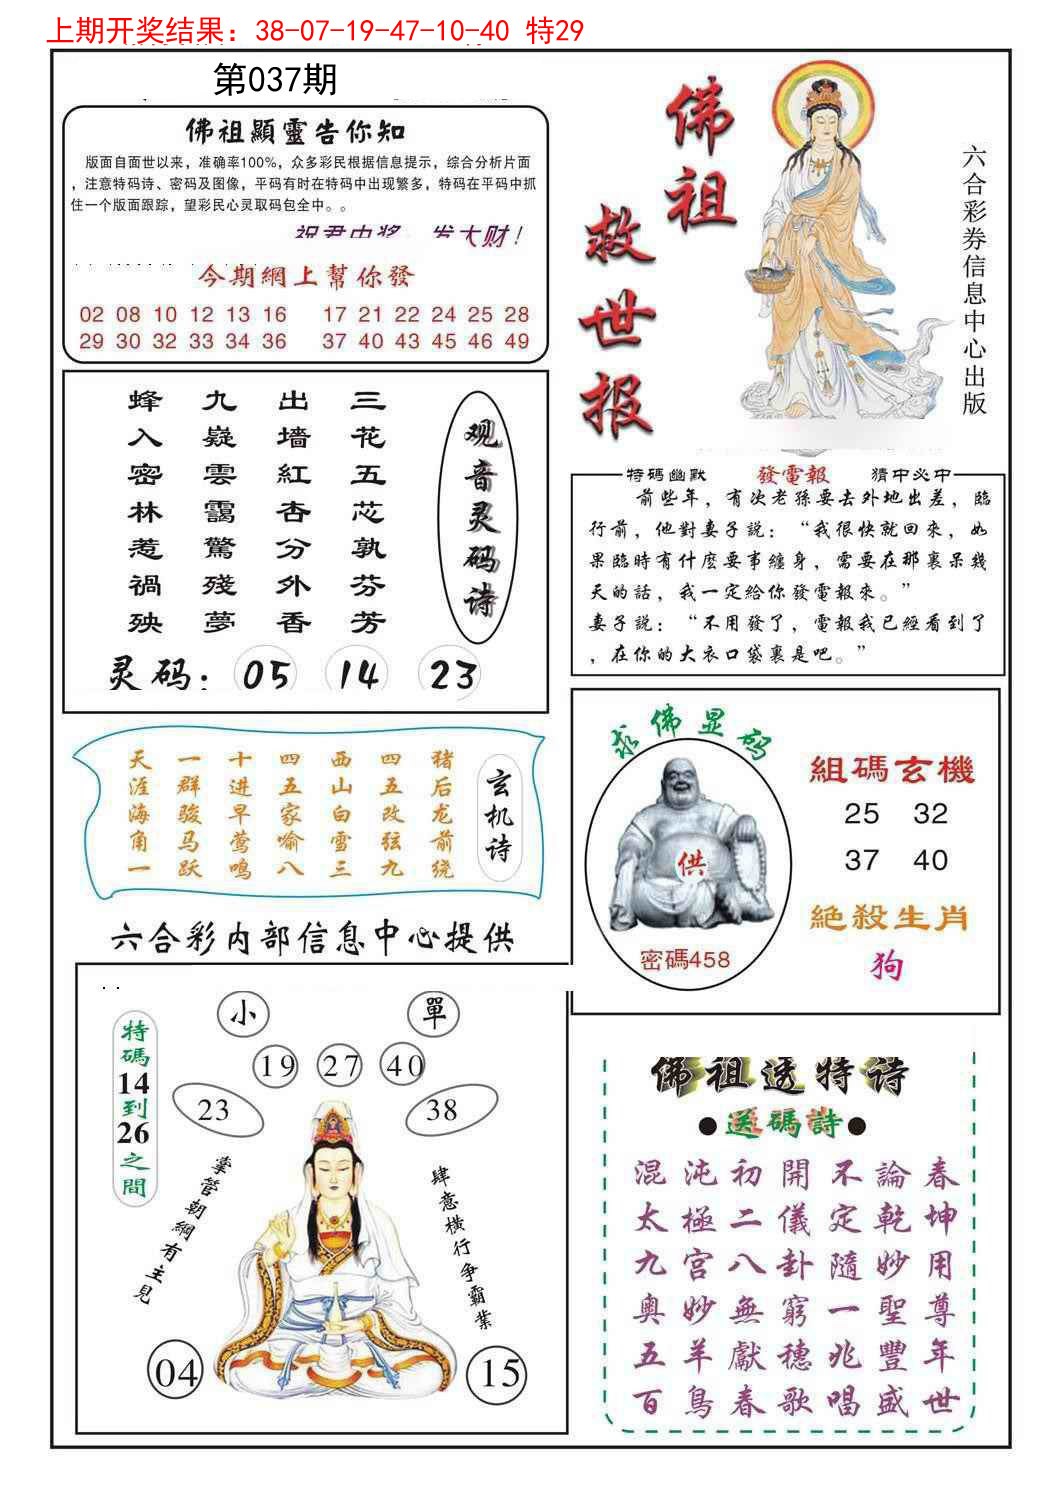 上期开奖结果：38-07-19-47-10-40 特29
第037期
佛祖顯靈告你知
版面自面世以来，准确率100%，众多彩民根据信息提示，综合分析片面
，注意特码诗、密码及图像，平码有时在特码中出现繁多，特码在平码中抓
住一个版面跟踪，望彩民心灵取码包全中。。
祝君中奖 发大财！
今期網上幫你發
02 08 10 12 13 16 17 21 22 24 25 28
29 30 32 33 34 36 37 40 43 45 46 49
佛祖
救世报
六合彩券信息中心出版
观音灵码诗
三花五芯孰芬芳
出墙紅杏分外香
九嶷雲靄驚殘夢
蜂入密林惹禍殃
灵码：05 14 23
特碼幽默 發電報 猜中必中
前些年，有次老孫要去外地出差，臨
行前，他對妻子説：“我很快就回來，如
果臨時有什麽要事纏身，需要在那裏呆幾
天的話，我一定給你發電報來。”
妻子説：“不用發了，電報我已經看到了
，在你的大衣口袋裏是吧。”
玄机诗
猪后龙前绕
四五改弦九
西山白雪三
四五家喻八
十进早莺鸣
一群骏马跃
天涯海角一
求佛显码
供
密碼458
組碼玄機
25 32
37 40
絕殺生肖
狗
六合彩内部信息中心提供
特碼14到26之間
小 單
19 27 40
23 38
掌管朝綱有主見
肆意横行争霸業
04 15
佛祖透特诗
●送碼詩●
混沌初開不論春
太極二儀定乾坤
九宫八卦隨妙用
奥妙無窮一聖尊
五羊獻穗兆豐年
百鳥春歌唱盛世